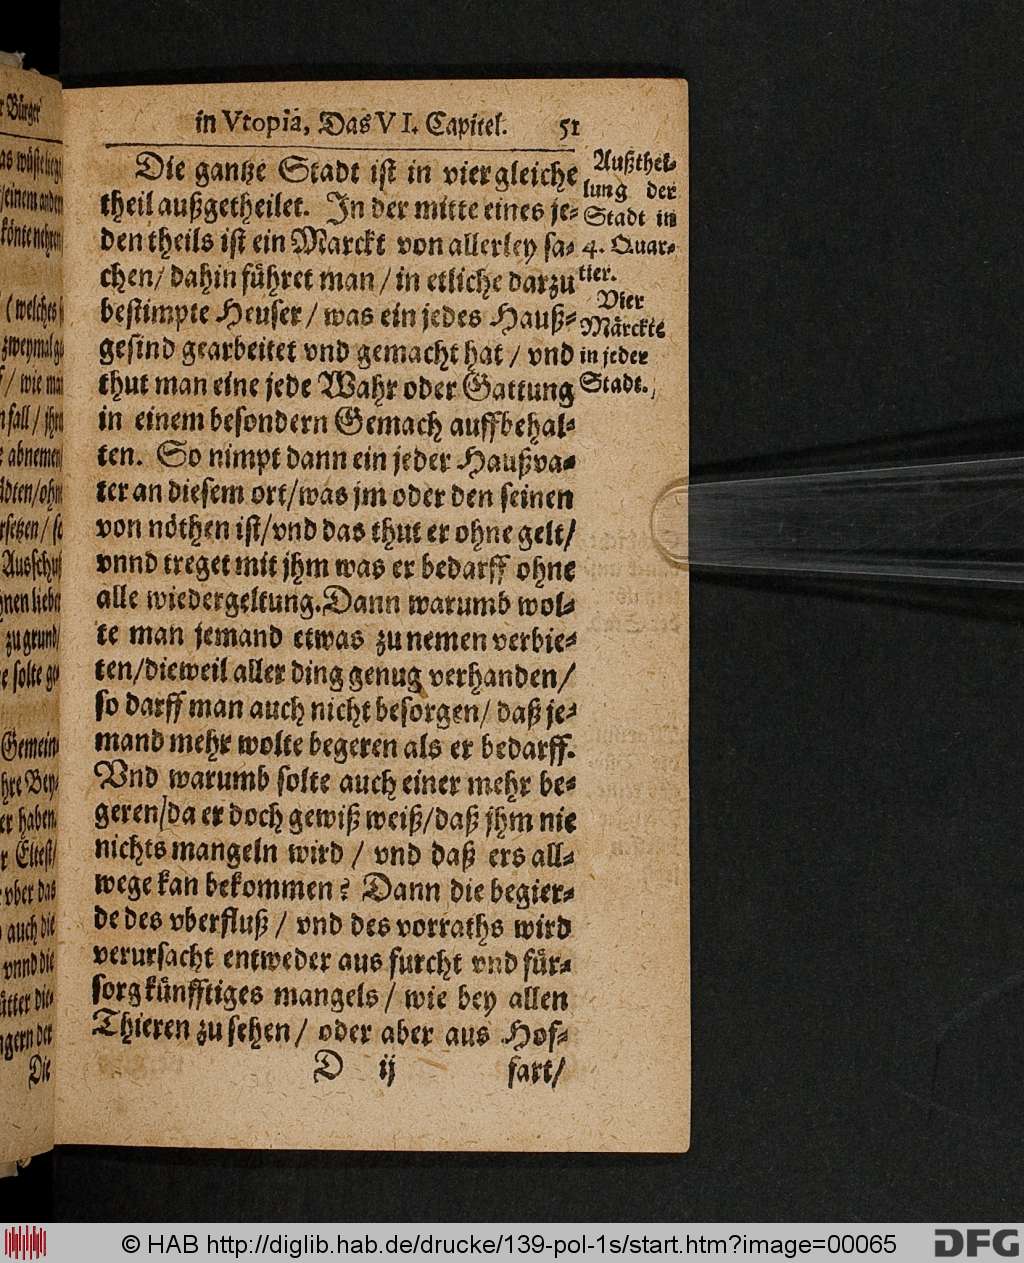 in Vtopiâ, Das VI. Capitel. 51
Die gantze Stadt ist in vier gleiche
theil außgetheilet. In der mitte eines je⸗
den theils ist ein Marckt von allerley sa⸗
chen/ dahin führet man / in etliche darzu
bestimpte Heuser / was ein jedes Hauß⸗
gesind gearbeitet vnd gemacht hat / vnd
thut man eine jede Wahr oder Gattung
in einem besondern Gemach auffbehal⸗
ten. So nimpt dann ein jeder Haußva⸗
ter an diesem ort/was jm oder den seinen
von nöthen ist/vnd das thut er ohne gelt/
vnnd treget mit jhm was er bedarff ohne
alle wiedergeltung. Dann warumb wol⸗
te man jemand etwas zu nemen verbie⸗
ten/dieweil aller ding genug verhanden/
so darff man auch nicht besorgen/ daß je⸗
mand mehr wolte begeren als er bedarff.
Vnd warumb solte auch einer mehr be⸗
geren/da er doch gewiß weiß/daß jhm nie
nichts mangeln wird / vnd daß ers all⸗
wege kan bekommen? Dann die begier⸗
de des vberfluß / vnd des vorraths wird
verursacht entweder aus furcht vnd für⸗
sorg künfftiges mangels / wie bey allen
Thieren zu sehen / oder aber aus Hof⸗
D ij fart/
Außthei⸗
lung der
Stadt in
4. Quar⸗
tier.
Vier
Märckte
in jeder
Stadt.
Bürger
einem andern
könte nehren
(welches
zweymal
/ wie man
fall / jhre
abnemen
/ohn
rsetzen/
Ausschuß
hnen lieber
zu grund/
solte
Gemein
hre Bey⸗
er haben
r Eltest/
vber das
auch die
vnnd die
ütter die⸗
ngern der
Die
© HAB http://diglib.hab.de/drucke/139-pol-1s/start.htm?image=00065
DFG